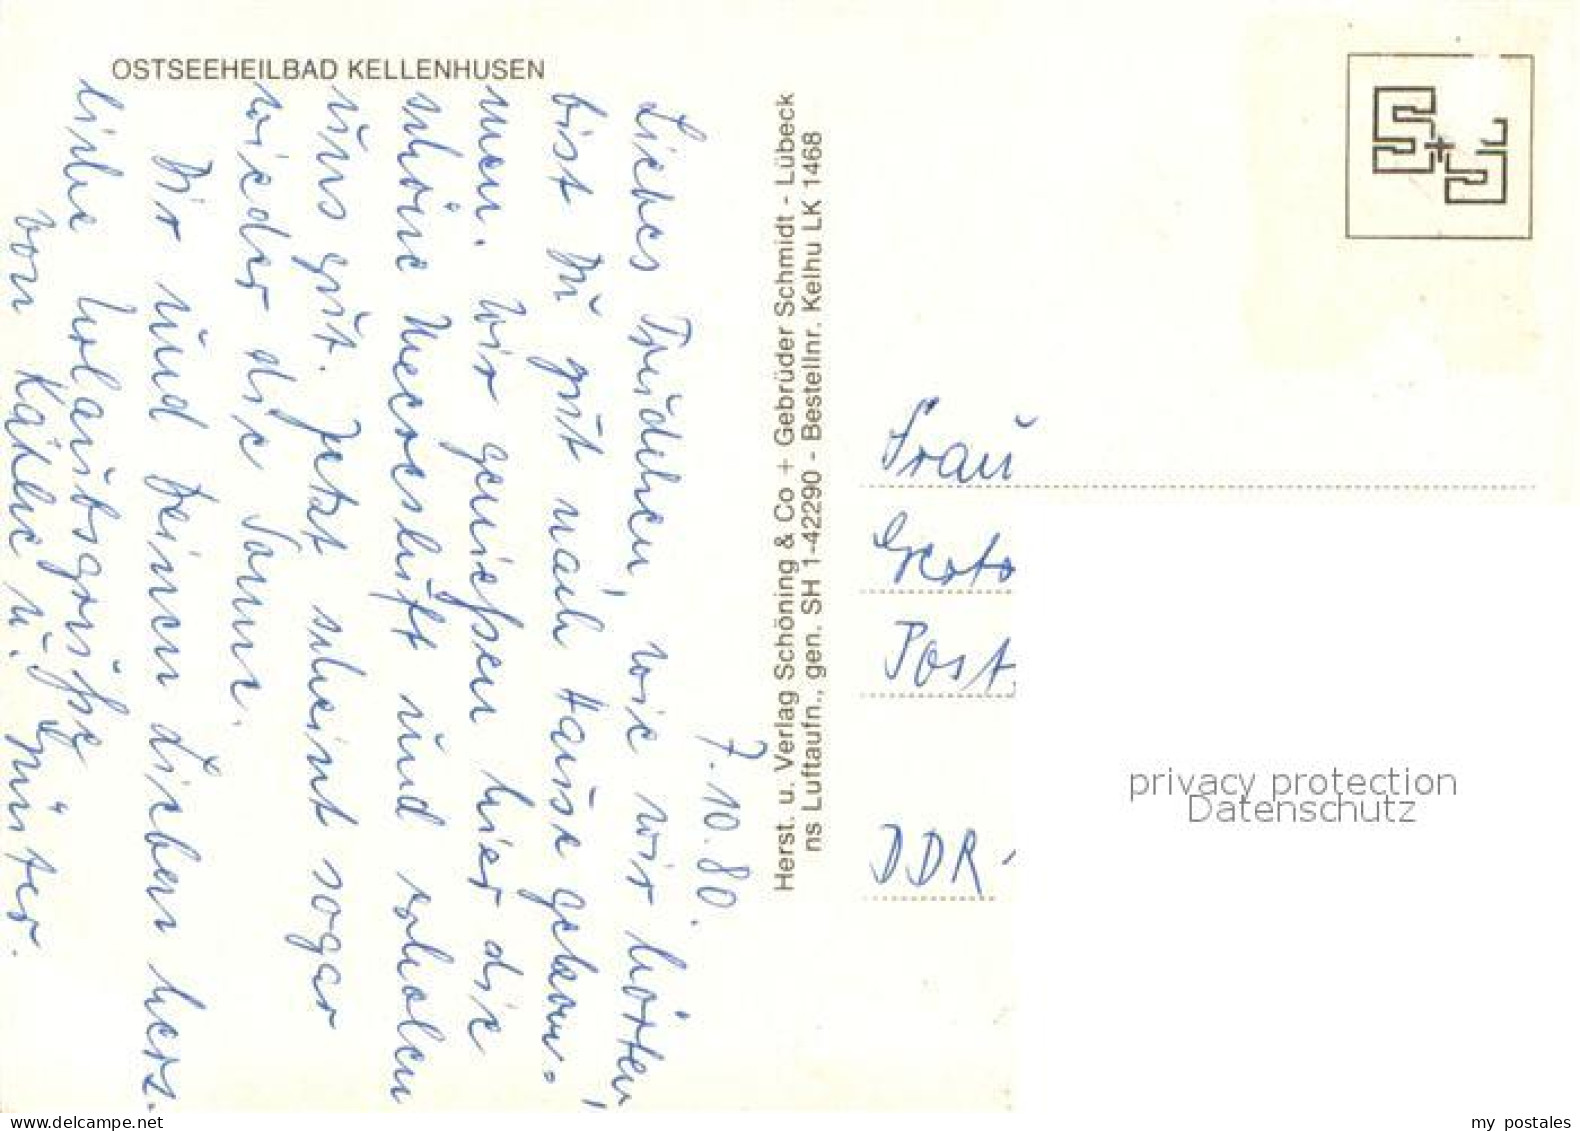 OSTSEEHEILBAD KELLENHUSEN
7.10.80.
Liebes Trudchen, wie wir hörten,
bist Du gut nach Hause gekom-
men. Wir genießen hier die
schöne Meeresluft und erholen
uns gut. Jetzt scheint sogar
wieder die Sonne.
Dir und Deinen Lieben herz-
liche Urlaubsgrüße
von Käthe u. Günter.
Herst. u. Verlag Schöning & Co + Gebrüder Schmidt - Lübeck
ns Luftaufn., gen. SH 1-42290 - Bestellnr. Kelhu LK 1468
S+S
Frau
Post
DDR -
privacy protection
Datenschutz
delcampe.net
my postales